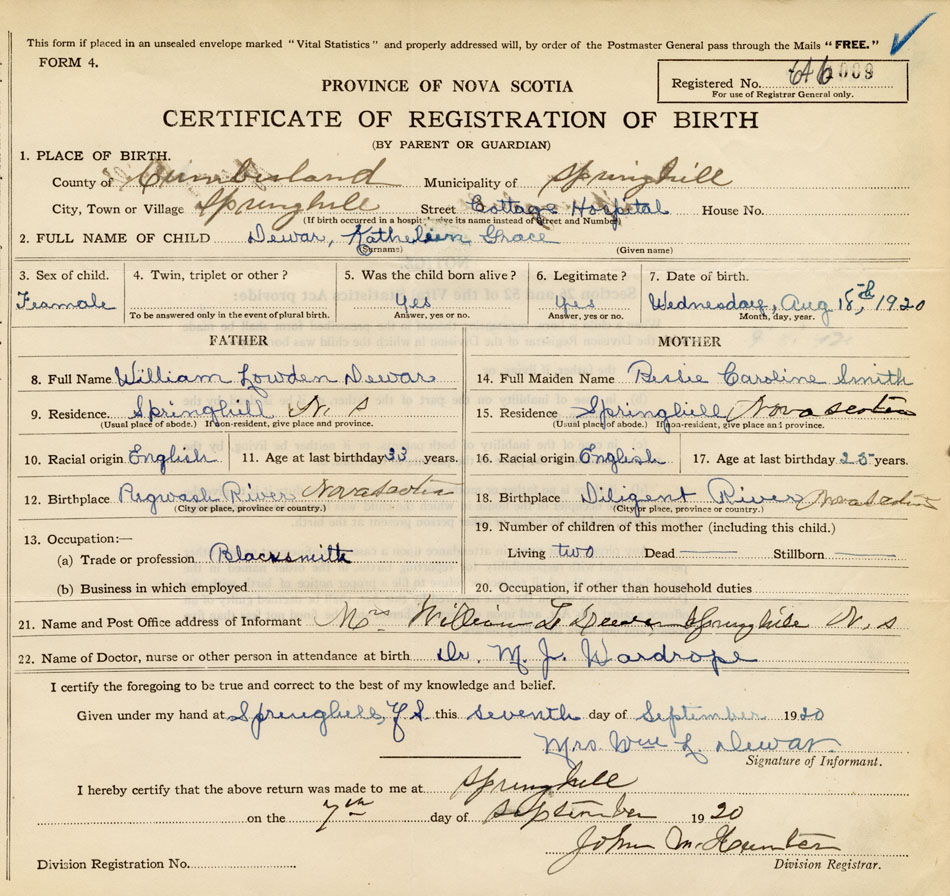 This form if placed in an unsealed envelope marked "Vital Statistics" and properly addressed will, by order of the Postmaster General pass through the Mails "FREE."
FORM 4.
Registered No.
For use of Registrar General only.
PROVINCE OF NOVA SCOTIA
CERTIFICATE OF REGISTRATION OF BIRTH
(BY PARENT OR GUARDIAN)
1. PLACE OF BIRTH.
County of Cumberland Municipality of Springhill
City, Town or Village Springhill Street Cottage Hospital House No.
(If birth occurred in a hospital give its name instead of Street and Number)
2. FULL NAME OF CHILD Dewar, Katheleen Grace
(Surname) (Given name)
3. Sex of child. 4. Twin, triplet or other? 5. Was the child born alive? 6. Legitimate? 7. Date of birth.
Feamale yes yes Wednesday, Aug 18th, 1920
To be answered only in the event of plural birth. Answer, yes or no. Answer, yes or no. Month, day, year.
FATHER MOTHER
8. Full Name William Lowden Dewar 14. Full Maiden Name Bessie Caroline Smith
9. Residence Springhill N. S 15. Residence Springhill Nova scotia
(Usual place of abode.) If non-resident, give place and province. (Usual place of abode.) If non-resident, give place and province.
10. Racial origin English 11. Age at last birthday 33 years. 16. Racial origin English 17. Age at last birthday 25 years.
12. Birthplace Pugwash River Nova Scotia 18. Birthplace Diligent River Nova Scotia
(City or place, province or country.) (City or place, province or country.)
13. Occupation:— 19. Number of children of this mother (including this child.)
(a) Trade or profession Blacksmith Living two Dead — Stillborn —
(b) Business in which employed 20. Occupation, if other than household duties
21. Name and Post Office address of Informant Mrs William L Dewar Springhill N. S
22. Name of Doctor, nurse or other person in attendance at birth Dr. M. J. Wardrope
I certify the foregoing to be true and correct to the best of my knowledge and belief.
Given under my hand at Springhill, N.S. this seventh day of September 1920
Mrs. Wm L. Dewar.
Signature of Informant.
I hereby certify that the above return was made to me at Springhill
on the 7th day of September 1920
John M. Hunter
Division Registration No. Division Registrar.